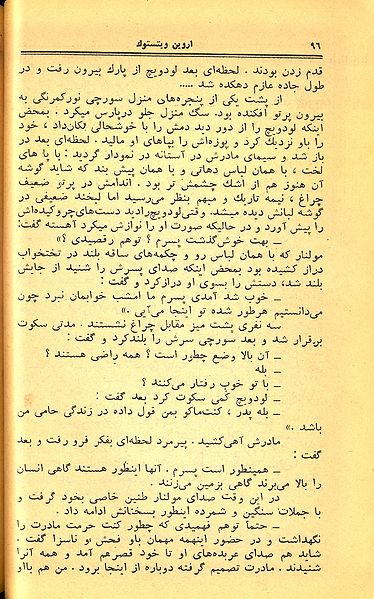 ۹۶ اروین ویتستوك
قدم زدن بودند . لحظه‌ای بعد لودویچ از پارك بیرون رفت و در
طول جاده عازم دهکده شد ....
از پشت یکی از پنجره‌های منزل سورچی نورکمرنگی به
بیرون پرتو افکنده بود. سگ منزل جلو دربارس میکرد . بمحض
اینکه لودویچ را از دور دید دمش را با خوشحالی تکان‌داد ، خود
را باو نزدیك کرد و پوزه‌اش را بپاهای او مالید . لحظه‌ای بعد در
باز شد و سیمای مادرش در آستانه در نمودار گردید : با پا های
لخت ، با همان لباس دهاتی و با همان پیش بند که شاید گوشه
آن هنوز هم از اشك چشمش تر بود . اندامش در پرتو ضعیف
چراغ ، نیمه تاریك و مبهم بنظر می‌رسید اما لبخند ضعیفی در
گوشه لبانش دیده میشد. وقتی‌لودویچ‌رادید دست‌های‌چروکیده‌اش
را پیش آورد و در حالیکه صورت او را نوازش میکرد آهسته گفت:
ـ بهت خوش‌گذشت پسرم ؟ توهم رقصیدی ؟»
مولنار که با همان لباس رو و چکمه‌های ساقه بلند در تختخواب
دراز کشیده بود بمحض اینکه صدای پسرش را شنید از جایش
بلند شد، دستش را بسوی او درازکرد و گفت:
ـ خوب شد آمدی پسرم ما امشب خوابمان نبرد چون
می‌دانستیم هرطور شده تو اینجا می‌آیی .»
سه نفری پشت میز مقابل چراغ نشستند . مدتی سکوت
برقرار شد و بعد سورچی سرش را بلندکرد و گفت :
ـ آن بالا وضع چطور است ؟ همه راضی هستند ؟
ـ بله
ـ با تو خوب رفتار می‌کنند ؟
ـ لودویچ کمی سکوت کرد بعد گفت :
ـ بله پدر ، کنت‌ماکو بمن قول داده در زندگی حامی من
باشد .»
مادرش آهی‌کشید . پیرمرد لحظه‌ای بفکر فرو رفت و بعد
گفت :
ـ همینطور است پسرم . آنها اینطور هستند گاهی انسان
را بالا می‌برند گاهی بزمین می‌زنند .
در این وقت صدای مولنار طنین خاصی بخود گرفت و
با جملات سنگین و شمرده اینطور بسخنانش ادامه داد .
ـ حتماً توهم فهمیدی که چطور کنت حرمت مادرت را
نگهداشت و در حضور اینهمه مهمان باو فحش و ناسزا گفت .
شاید هم صدای عربده‌های او تا خود قصرهم آمد و همه آنرا
شنیدند . مادرت تصمیم گرفته دوباره از اینجا برود . من هم بااو